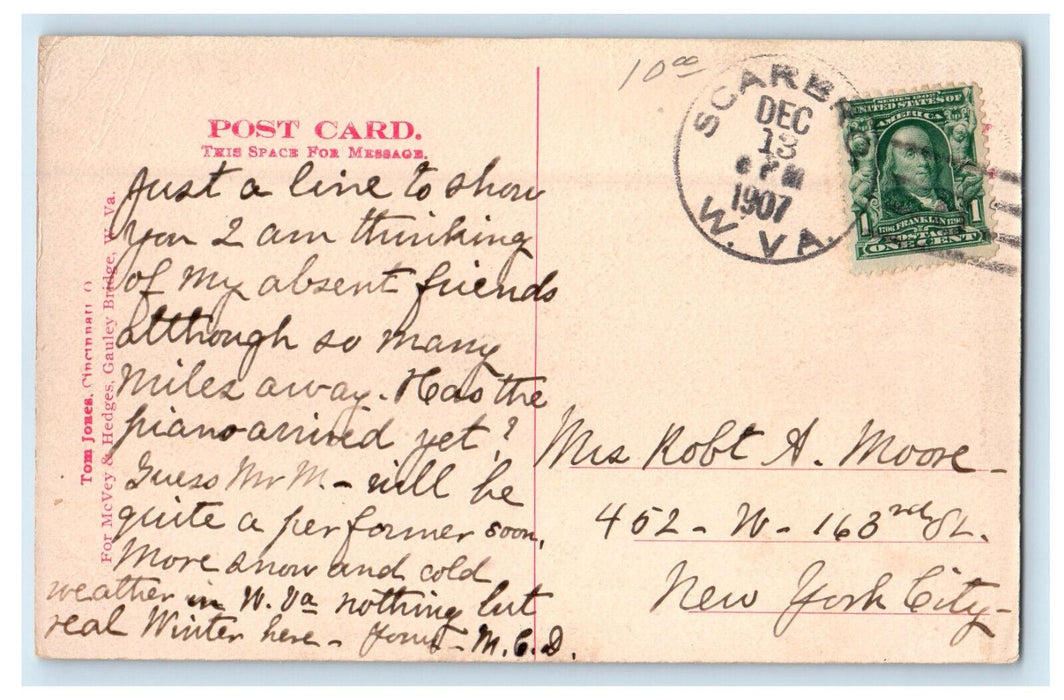 10⁰⁰
SCARBRO
DEC
13
6 PM
1907
W. VA.
SERIES 1902
UNITED STATES OF
AMERICA
1 1706 FRANKLIN 1790 1
POSTAGE
ONE CENT
POST CARD.
THIS SPACE FOR MESSAGE.
Tom Jones, Cincinnati O
For McVey & Hedges, Gauley Bridge, W. Va.
Just a line to show
you I am thinking
of my absent friends
although so many
miles away. Has the
piano arrived yet?
Guess Mr M. - will be
quite a performer soon.
More snow and cold
weather in W. Va nothing but
real Winter here - Yours - M.C.D.
Mrs Robt A. Moore -
452 - W - 163rd St.
New York City -